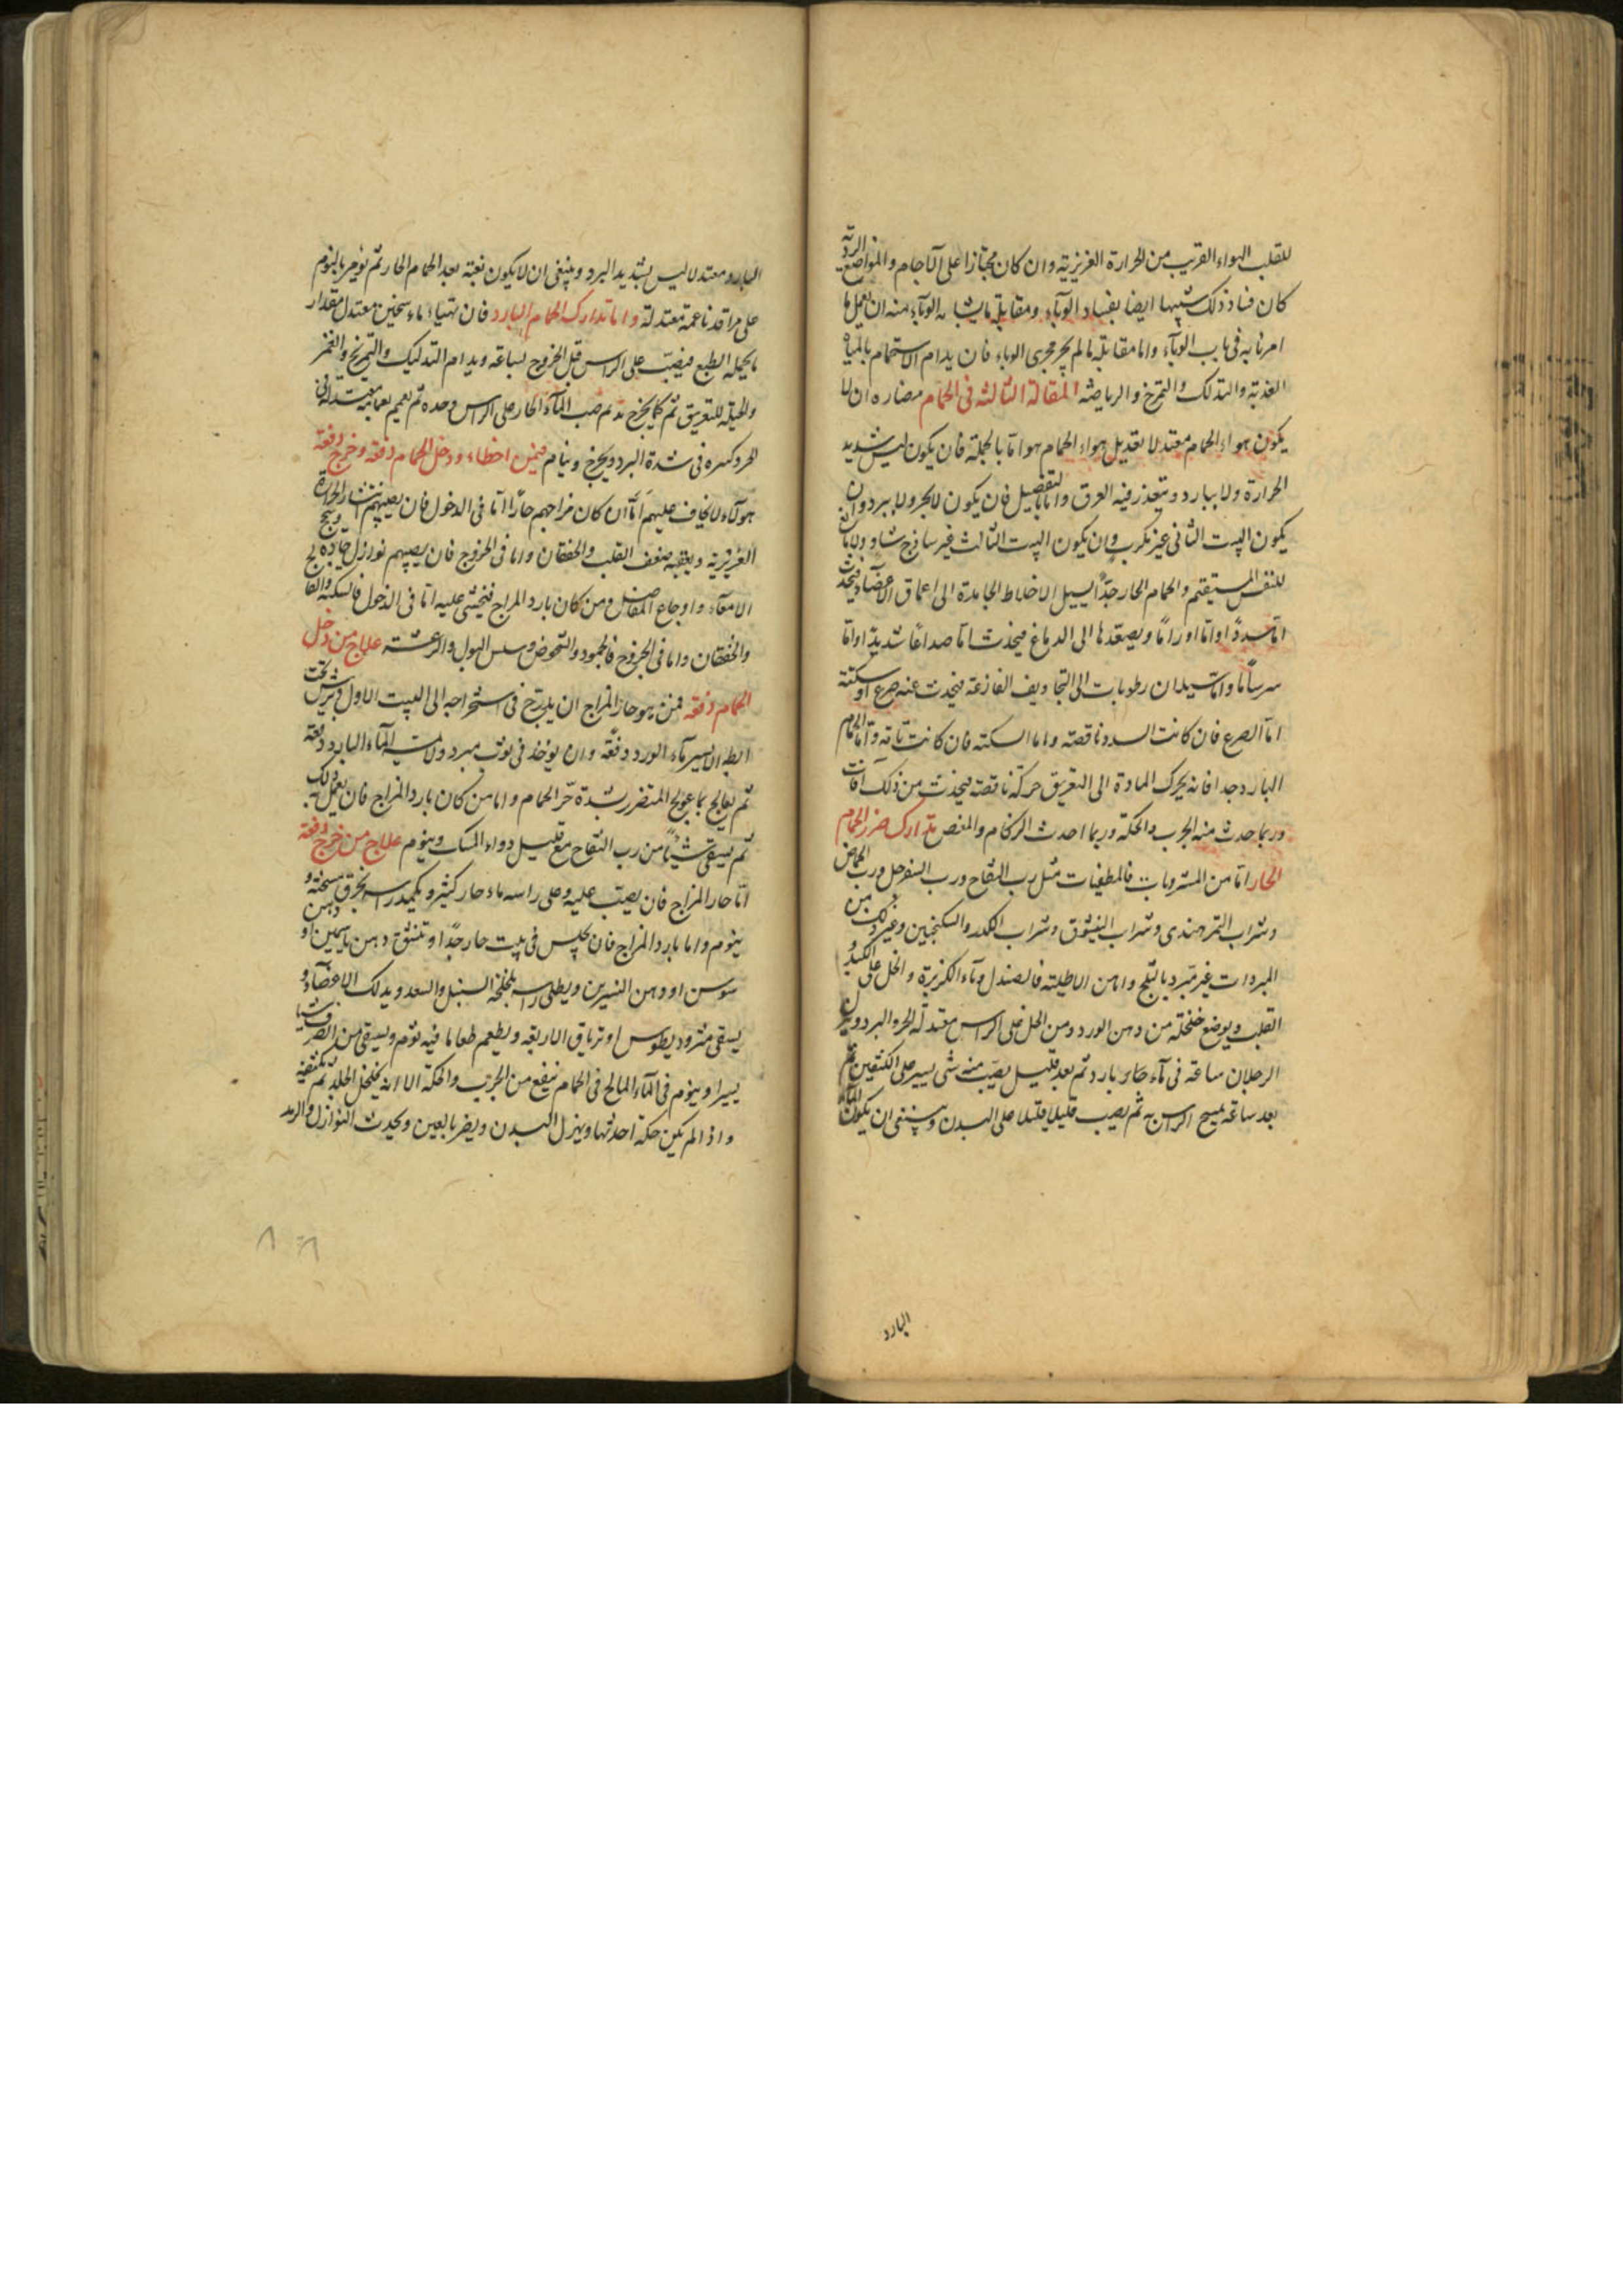 للقلب الهواء القريب من الحرارة الغريزية وان كان مجتازا على الآجام والمواضع الردية
كان فساد ذلك شبيها ايضا بفساد الوبآء ومقابلة ما يشابه الوبآء منه ان يعمل ما
امرنا به فى باب الوبآء واما مقابلة ما لم يجر مجرى الوباء فان يدام الاستحمام بالمياه
العذبة والتدلك والتمرخ والرياضة المقالة الثالثة فى الحمام مضاره ان لا
يكون هواء الحمام معتدلا تعديل هواء الحمام هو اما بالجملة فان يكون ليس شديد
الحرارة ولا ببارد ويتعذر فيه العرق واما بالتفصيل فان يكون لا يحر ولا يبرد وان
يكون البيت الثانى غير مكرب وان يكون البيت الثالث غير ساذج شاو ولا
للنفس المستقيم والحمام الحار جدًا يسيل الاخلاط الجامدة الى اعماق الاعضآء فيحدث
اما سددًا واما اورامًا ويصعدها الى الدماغ فيحدث اما صداعًا شديدا واما
سرسامًا واما تسيلان رطوبات الى التجاويف الفارغة فيحدث عنه صرع او سكتة
اما الصرع فان كانت السدد ناقصة واما السكتة فان كانت تامة واما الحمام
البارد جدا فانه يحرك المادة الى التعريق حركة ناقصة فيحدث من ذلك آفات
وربما حدث منه الجرب والحكة وربما احدث الزكام والمغص تدارك ضرر الحمام
الحار اما من المشروبات فالمطفيات مثل رب التفاح ورب السفرجل ورب الحماض
وشراب التمر هندى وشراب وشراب والسكنجبين وغير ذلك من
المبردات غير مبرد بالثلج وامن الاطلية فالصندل ومآء الكزبرة والخل على الكبد و
القلب ويوضع من دهن الورد ومن الخل على الراس معتدلة الحر والبرد ويترك
الرجلان ساعة فى مآء بارد ثم بعد قليل يصب منه شى يسير على الكتفين ثم
بعد ساعة يمسح الراس به ثم يصب قليلا قليلا على البدن وينبغى ان يكون المآء
البارد
البارد معتدلا ليس بشديد البرد وينبغى ان لا يكون بغتة بعد الحمام الحار ثم يؤمر بالنوم
على مراقد ناعمة معتدلة واما تدارك الحمام البارد فان تهيأ ماء سخين معتدل مقدار
الطبع فيصب على الراس قبل الخروج بساعة ويدام التدليك والتمريخ والغمز
والحيلة للتعريق ثم كما يخرج يدم صب المآء الحار على الراس وحده ثم يعمم بعمامة معتدلة فى
الحر وكسره فى شدة البرد ويخرج وينام فيمن اخطاء ودخل الحمام دفعة وخرج دفعة
هولآء لا يخاف عليهم اما ان كان مزاجهم حارًا اما فى الدخول فان يصيبهم انتشار الحرارة
الغريزية ويعقبه ضعف القلب والخفقان واما فى الخروج فان يصيبهم نوازل حادة
الامعآء واوجاع المفاصل ومن كان بارد المزاج فيخشى عليه اما فى الدخول فالسكتة
والخفقان واما فى الخروج فالجمود والشخوص وسلس البول والرعشة علاج من دخل
الحمام دفعة فمن هو حار المزاج ان يدرج فى استخراجه الى البيت الاول ويرش تحت
ابطه الايسر مآء الورد دفعة وان يؤخذ فى ثوب مبرد ولا يمسه المآء البارد دفعة
ثم يعالج بما عولج المتضرر بشدة حر الحمام واما من كان بارد المزاج فان يعمل به ذلك
ثم يسقى شيئًا من رب التفاح مع قليل دواء المسك وينوم علاج من خرج دفعة
اما حار المزاج فان يصب عليه وعلى راسه ماء حار كثير ويكمد راسه بخرق مسخنة و
ينوم واما بارد المزاج فان يجلس فى بيت حار جدًا وتنشق دهن ياسمين او دهن
سوسن او دهن النسرين ويطلى راسه بلخلخة السنبل والسعد ويدلك الاعضآء و
يسقى مثروديطوس او ترياق الاربعة ويطعم طعاما فيه ثوم ويسقى من الصرف شيا
يسيرا وينوم فى المآء المالح فى الحمام ينفع من الجرب والحكة الا انه يخلخل الجلد ثم يكثفه
واذا لم يكن حكة احدثها ويهزل البدن ويضر بالعين ويحدث النوازل والرمد